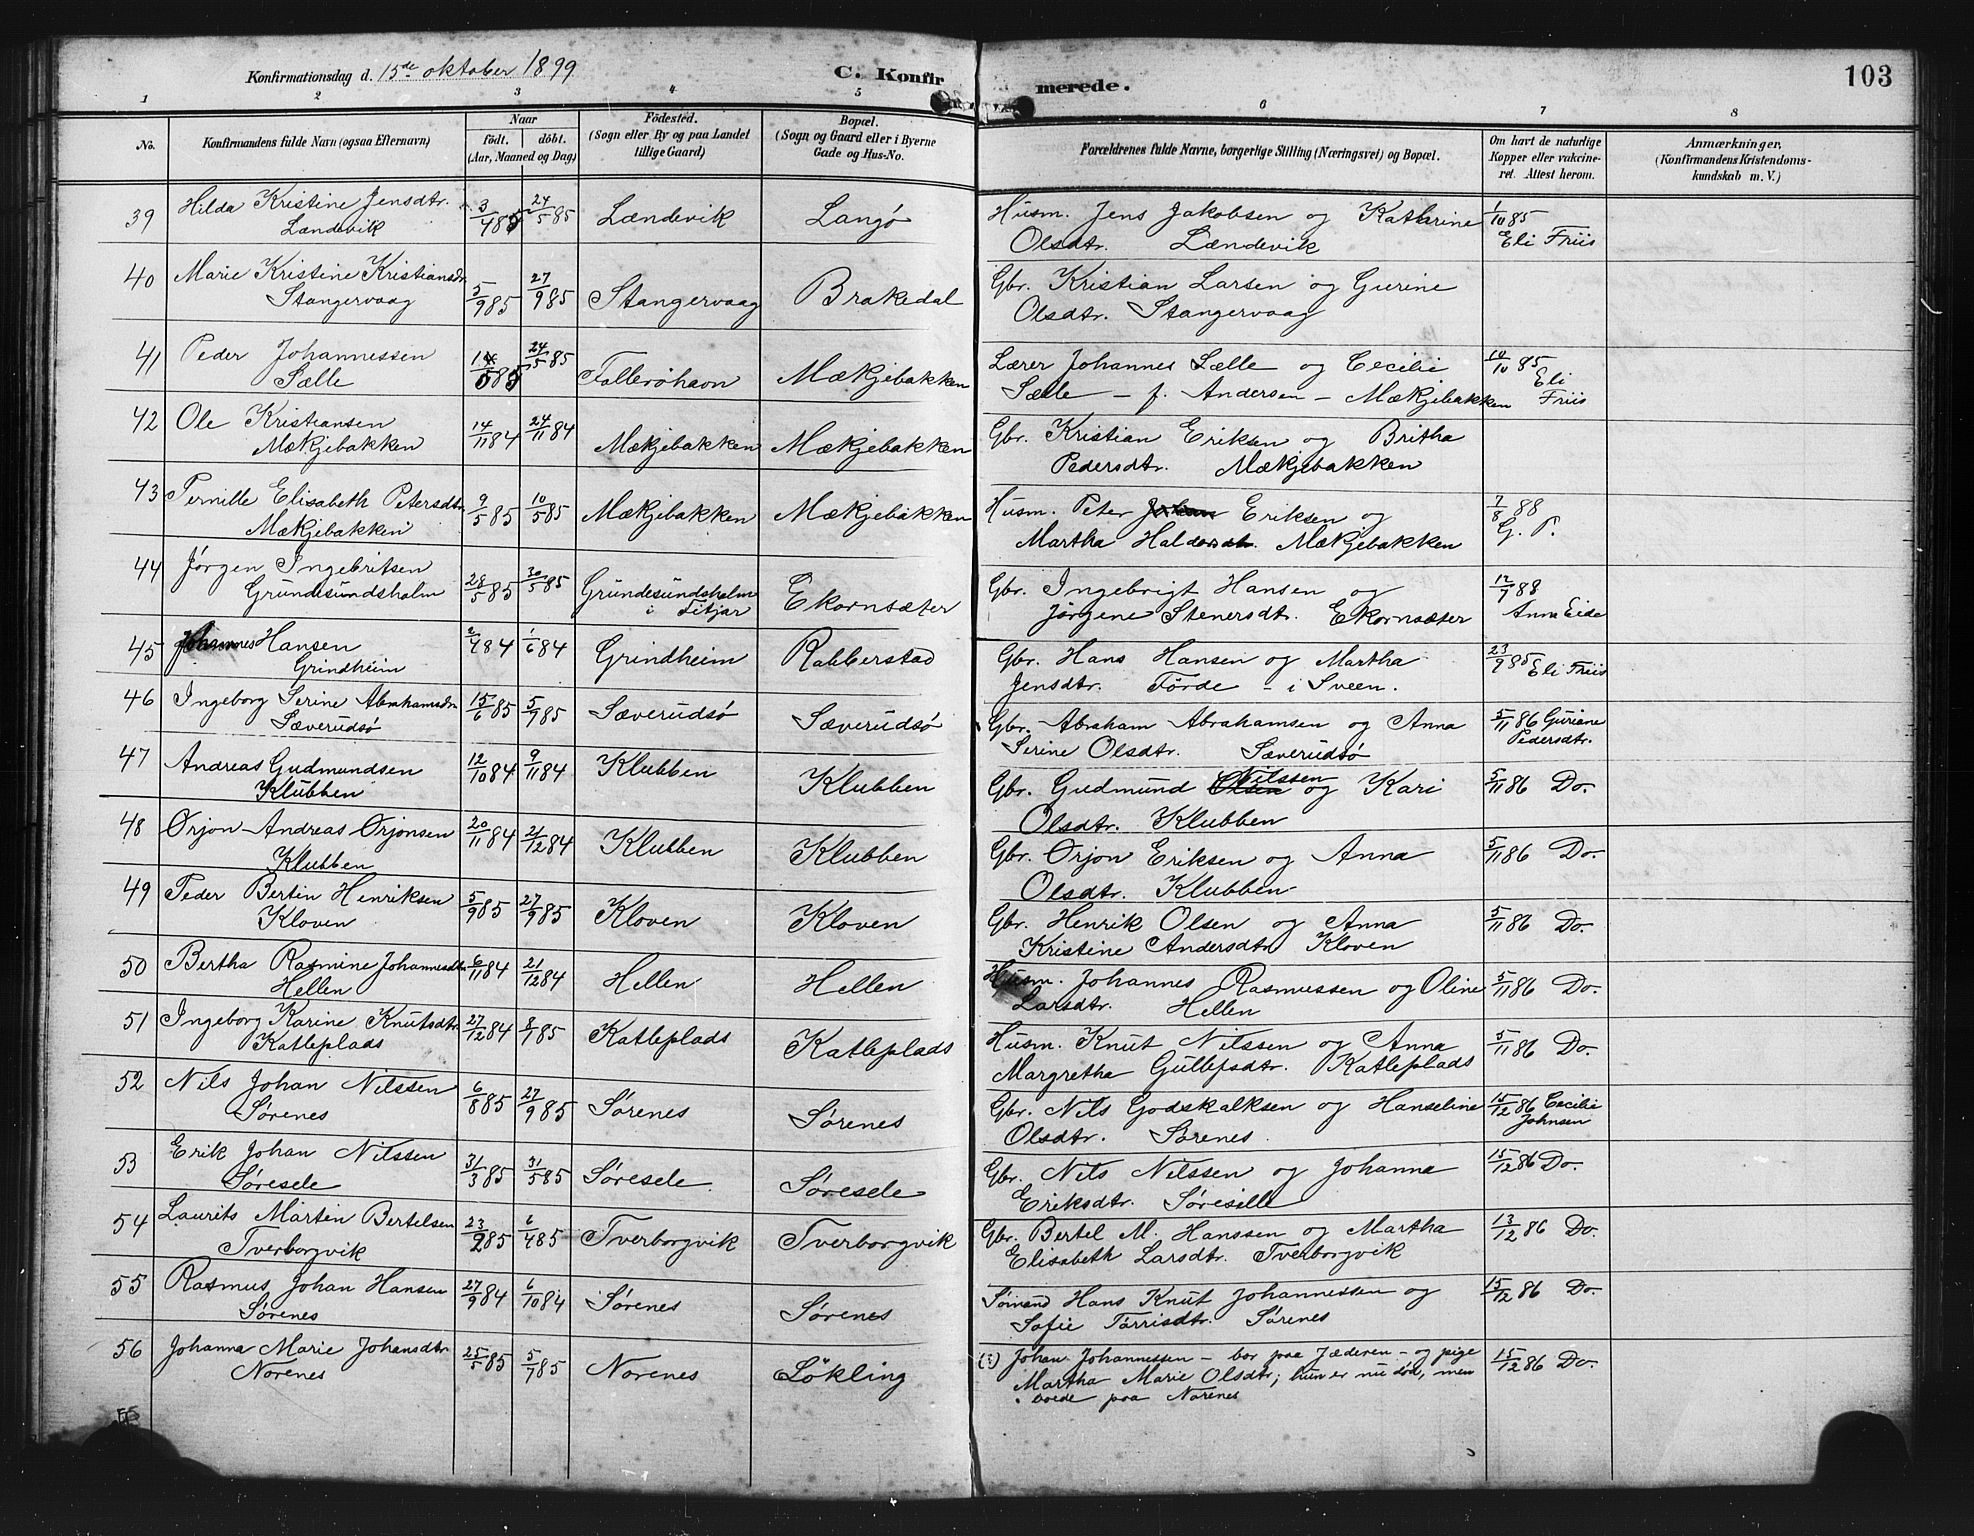 Konfirmationsdag d. 15de oktober 1899
C. Konfirmerede.
103
1 2 3 4 5 6 7 8
No.
Konfirmandens fulde Navn (ogsaa Efternavn)
Naar
født. døbt.
(Aar, Maaned og Dag)
Fødested.
(Sogn eller By og paa Landet
tillige Gaard)
Bopæl.
(Sogn og Gaard eller i Byerne
Gade og Hus-No.
Forældrenes fulde Navne, borgerlige Stilling (Næringsvei) og Bopæl.
Om havt de naturlige
Kopper eller vakcine-
ret. Attest herom.
Anmærkninger,
(Konfirmandens Kristendoms-
kundskab m. V.)
39 Hilda Kristine Jensdtr. 24/5 85 Lændevik Langø Husm. Jens Jakobsen og Kathrine 1/10 85
Lændevik Olsdtr. Lændevik Eli Friis
40 Marie Kristine Kristiansdr. 5/9 85 27/9 85 Stangervaag Brakedal Gbr. Kristian Larsen og Gurine
Stangervaag Olsdtr. Stangervaag
41 Peder Johannessen 24/5 85 Folkerøhavn Mækjebakken Lærer Johannes Sælle og Cecilie 10/10 85
Sælle Sælle – f. Andersen – Mækjebakken Eli Friis
42 Ole Kristiansen 14/11 84 24/11 84 Mækjebakken Mækjebakken Gbr. Kristian Eriksen og Britha
Mækjebakken Pedersdtr. Mækjebakken
43 Pernille Elisabeth Petersdtr. 9/5 85 10/5 85 Mækjebakken Mækjebakken Husm. Peter Eriksen og 7/8 88
Mækjebakken Martha Haldorsdt. Mækjebakken G. P.
44 Jørgen Ingebritsen 28/5 85 30/5 85 Grundesundsholm Ekornsæter Gbr. Ingebrigt Hansen og 12/7 88
Grundesundsholm i Fitjar Jørgene Stenersdt. Ekornsæter Anna Eide
45 Johannes Hansen 2/4 84 1/6 84 Grindheim Rabberstad Gbr. Hans Hansen og Martha 23/9 85 Eli Friis
Grindheim Jensdtr. Førde – i Sveen.
46 Ingeborg Serine Abrahamsdr. 15/6 85 5/7 85 Sæverudsø Sæverudsø Gbr. Abraham Abrahamsen og Anna 5/11 86 Guriane
Sæverudsø Serine Olsdtr. Sæverudsø Pedersdtr.
47 Andreas Gudmundsen 12/10 84 9/11 84 Klubben Klubben Gbr. Gudmund Olsen Nilssen og Kari 5/11 86 Do.
Klubben Olsdtr. Klubben
48 Ørjon Andreas Ørjonsen 20/11 84 21/12 84 Klubben Klubben Gbr. Ørjon Eriksen og Anna 5/11 86 Do.
Klubben Olsdtr. Klubben
49 Peder Bertin Henriksen 5/9 85 27/9 85 Kloven Kloven Gbr. Henrik Olsen og Anna 5/11 86 Do.
Kloven Kristine Andersdtr. Kloven
50 Bertha Rasmine Johannesdtr. 6/11 84 21/12 84 Hellen Hellen Husm. Johannes Rasmussen og Oline 5/11 86 Do.
Hellen Larsdtr. Hellen
51 Ingeborg Karine Knutsdtr. 27/12 84 8/1 85 Katleplads Katleplads Husm. Knut Nilssen og Anna 5/11 86 Do.
Katleplads Margretha Gullepsdtr. Katleplads
52 Nils Johan Nilssen 6/8 85 27/9 85 Sørenes Sørenes Gbr. Nils Godskalksen og Hanseline 15/12 86 Cecilie
Sørenes Olsdtr. Sørenes. Johnsen
53 Erik Johan Nilssen 31/3 85 31/5 85 Søresele Søresele Gbr. Nils Nilssen og Johanna 15/12 86 Do.
Søresele Eriksdtr. Søresille
54 Laurits Martin Bertelsen 23/2 85 6/4 85 Tverborgvik Tverborgvik Gbr. Bertel M. Hanssen og Martha 13/12 86 Do.
Tverborgvik Elisabeth Larsdtr. Tverborgvik
55 Rasmus Johan Hansen 27/9 84 6/10 84 Sørenes Sørenes Sømand Hans Knut Johannessen og 15/12 86 Do.
Sørenes Sofie Tørrisdtr. Sørenes
56 Johanna Marie Johansdtr. 25/5 85 5/7 85 Norenes Løkling Johan Johannessen – bor paa Jæderen – og pige 15/12 86 Do.
Norenes Martha Marie Olsdtr; hun er nu død, men
boede paa Norenes